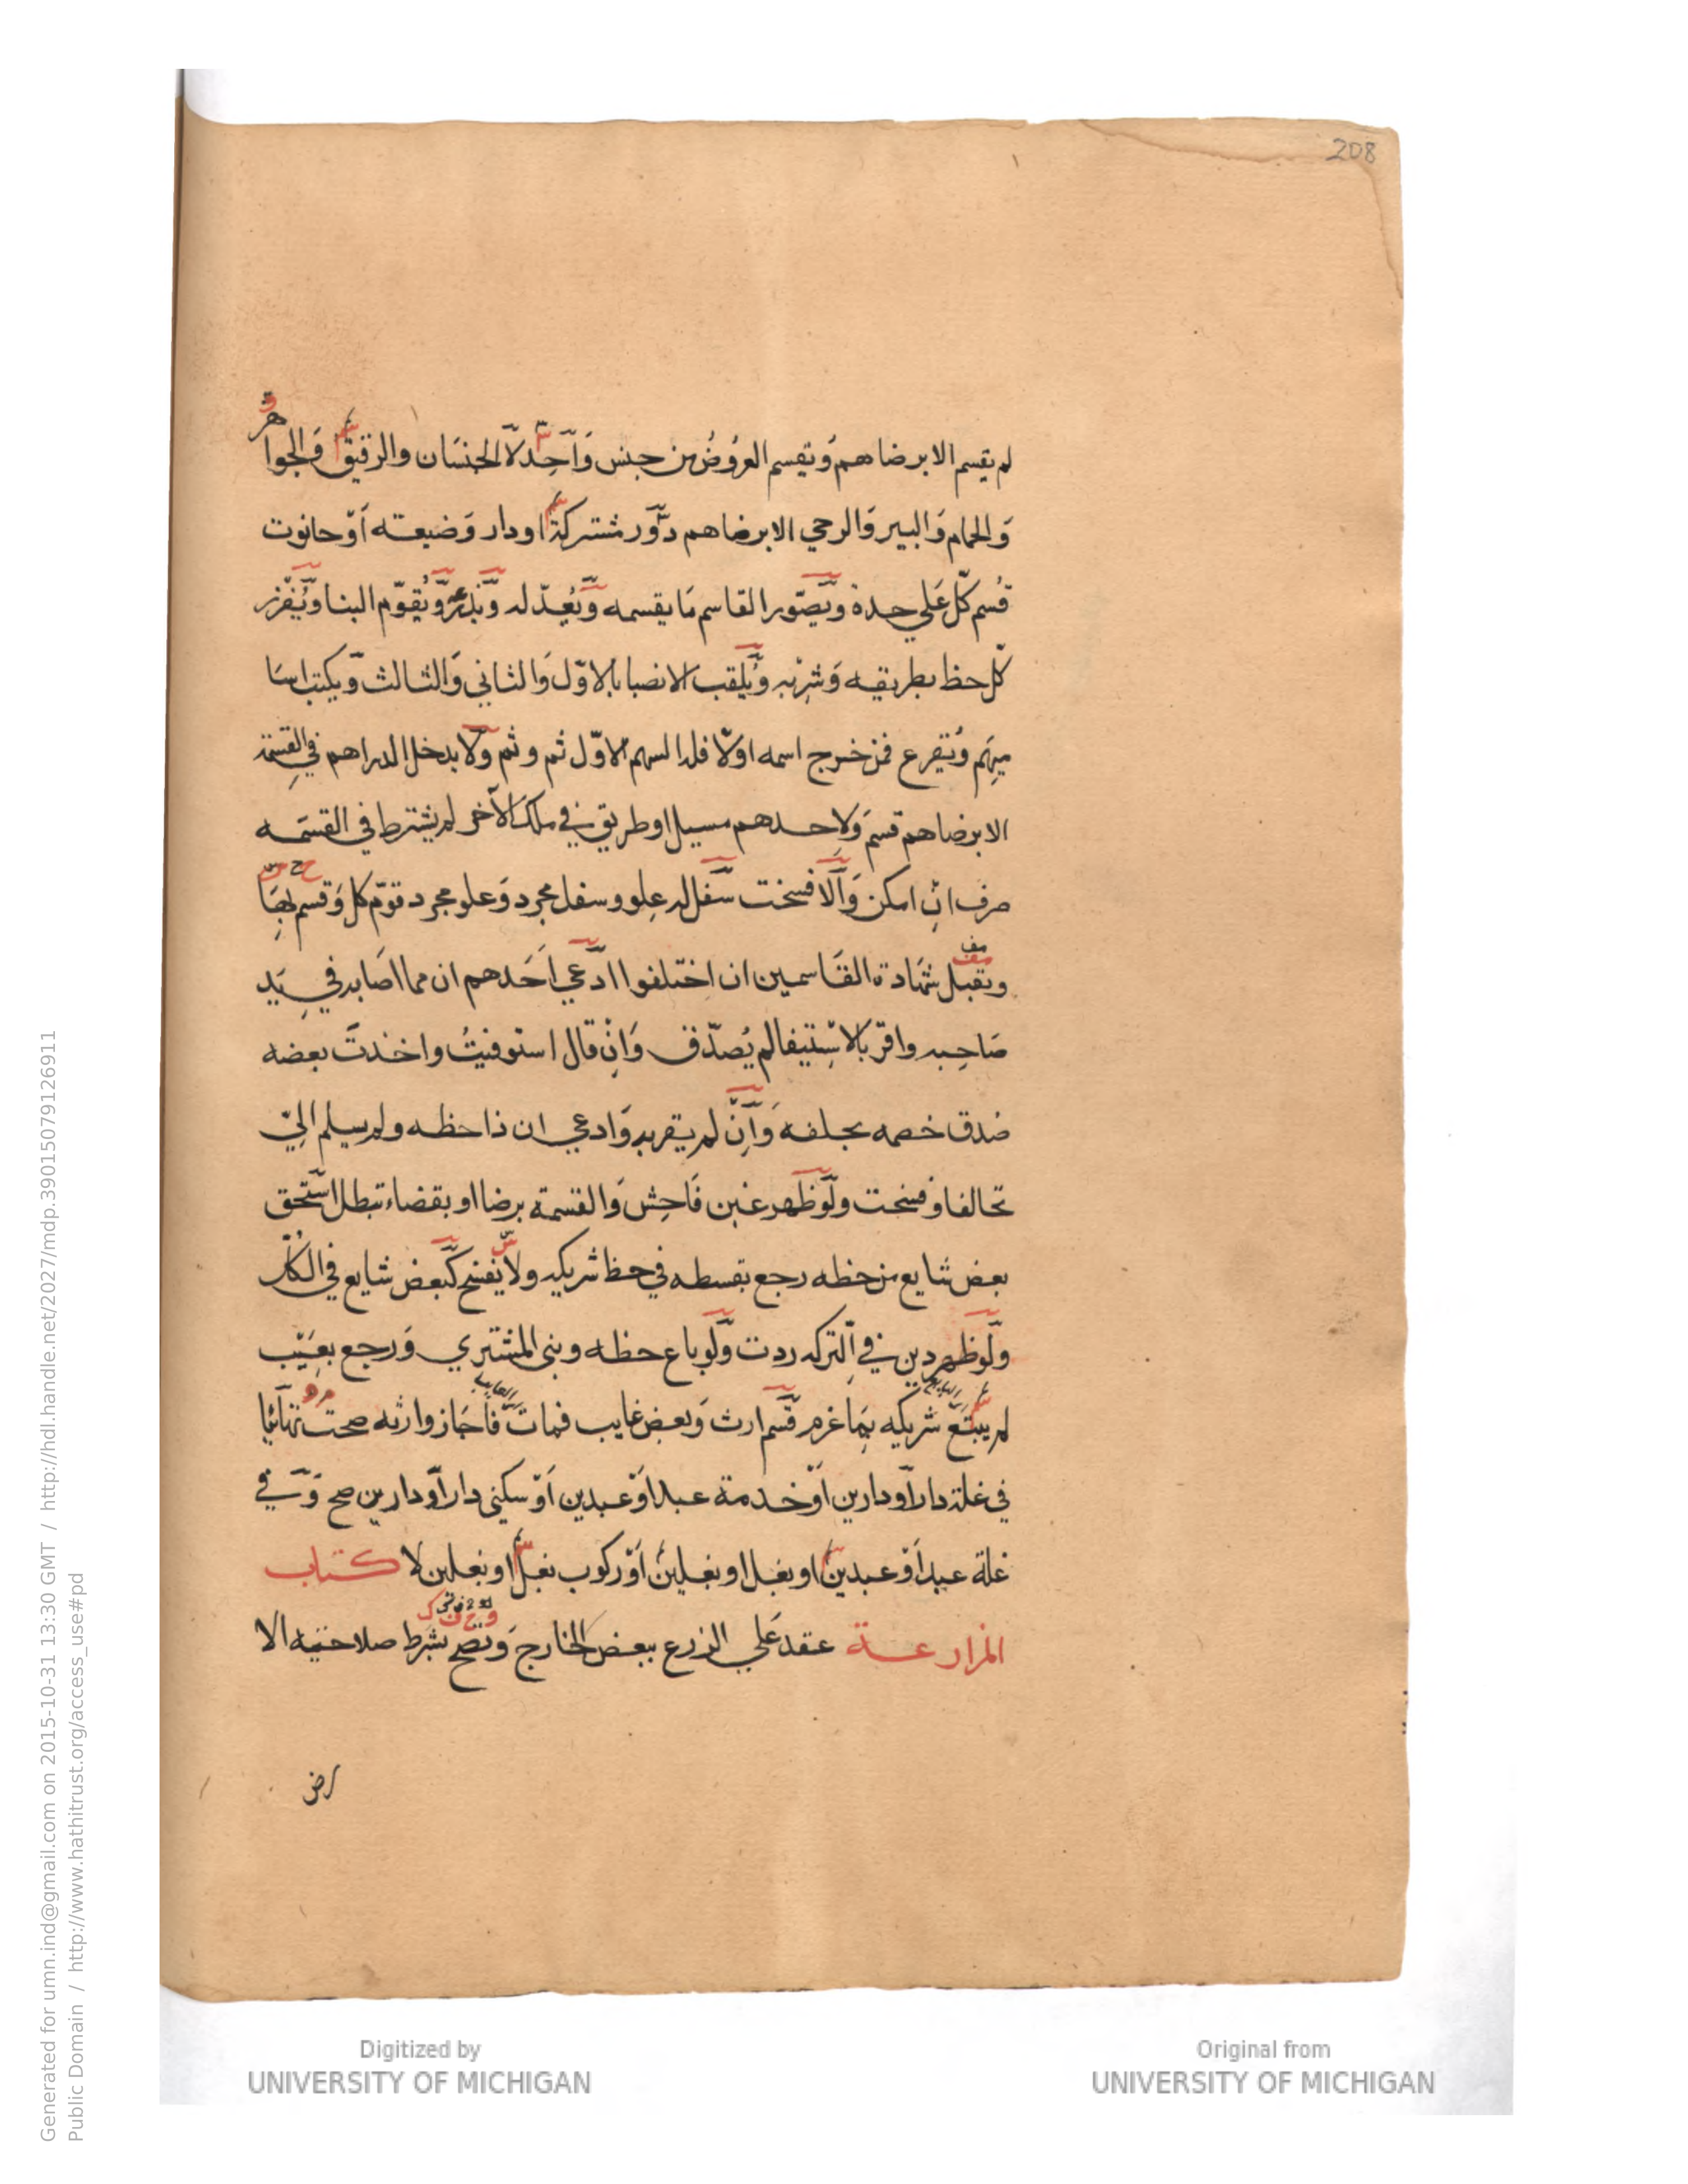 208
لم يقسم الا برضاهم وتقسم العروض من جنس واحد لا الجنسان والرقيق والجواهر
والحمام والبير والرحي الا برضاهم دور مشتركة او دار وضيعته او حانوت
قسم كل علي حدة ويصور القاسم ما يقسمه ويعدله ويذرعه ويقوم البنا ويفرز
كل حظ بطريقه وشربه ويلقب الانصبا بالاول والثاني والثالث ويكتب اسا
ميهم ويقرع فمن خرج اسمه اولا فله السهم الاول ثم وثم ولا يدخل الدراهم في القسمة
الا برضاهم قسم ولاحدهم مسيل او طريق في ملك الآخر لم يشترط في القسمه
صرف ان امكن والا فسخت سفل له علو وسفل مجرد وعلو مجرد قوم كل وقسم بها
وتقبل شهادة القاسمين ان اختلفوا ادعي احدهم ان مما اصابه في يد
صاحبه واقر بالاستيفا لم يصدق وان قال استوفيت واخذت بعضه
صدق خصمه بحلفه وان لم يقر به وادعي ان ذا حظه ولم يسلم الي
تحالفا وفسخت ولو ظهر غبن فاحش والقسمة برضا او بقضاء تبطل استحق
بعض شايع من حظه رجع بقسطه في حظ شريكه ولا يفسخ كبعض شايع في الكل
ولو ظهر دين في التركه ردت ولو باع حظه وبنى المشتري ورجع بعيب
لم يتبع شريكه بما غرم قسم ارث وبعض غايب فمات فاجاز وارثه صحت تهائيا
في غلة دار او دارين او خدمة عبد او عبدين او سكنى دار او دارين صح وفي
غلة عبد او عبدين او بغل او بغلين او ركوب بغل او بغلين لا كتاب
المزارعة عقد علي الزرع ببعض الخارج وتصح بشرط صلاحيه الا
رض
Generated for umn.ind@gmail.com on 2015-10-31 13:30 GMT / http://hdl.handle.net/2027/mdp.39015079126911
Public Domain / http://www.hathitrust.org/access_use#pd
Digitized by
UNIVERSITY OF MICHIGAN
Original from
UNIVERSITY OF MICHIGAN